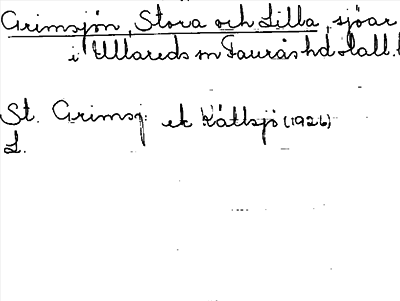 Grimsjön, Stora och Lilla, sjöar
i Ullareds sn Faurås hd Hall. l
St. Grimsj: ek Kättsjö (1926)
L.